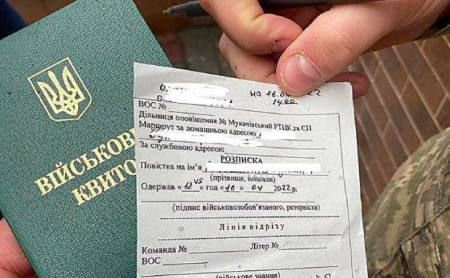 ВІЙСЬКОВ
КВИТО
на 16.04.22
14.00
ВОС №
Дільниця оповіщення № Мукачівський РТЦК та СП
Маршрут за домашньою адресою
За службовою адресою
РОЗПИСКА
Повістка на ім'я,
(прізвище, ініціали)
Одержав «12 45» год «16» 04 2022 г.
(підпис військовозобов'язаного, резервіста)
Лінія відрізу
Команда № Літер №
ВОС
(військове звання)